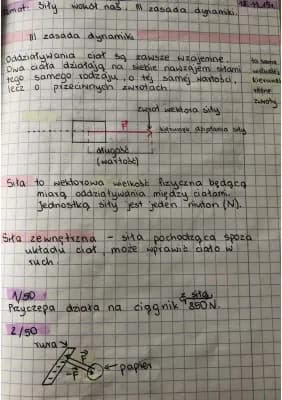 Temat: Siły wokół nas. III zasada dynamiki.
III zasada dynamiki
Oddziaływania ciał są zawsze wzajemne.
Dwa ciała działają na siebie nawzajem siłami
tego samego rodzaju, o tej samej wartości,
lecz o przeciwnych zwrotach.
ta sama
wartość,
kierunek
różne
zwroty
zwrot wektora siły
F
kierunek działania siły
długość
(wartość)
Siła to wektorowa wielkość fizyczna będąca
miarą oddziaływania między ciałami.
Jednostką siły jest jeden niuton (N).
Siła zewnętrzna - siła pochodząca spoza
układu ciał, może wprawić ciało w
ruch.
1/50
Przyczepa działa na ciągnik z siłą 850N.
2/50
rura
F
-F
papier